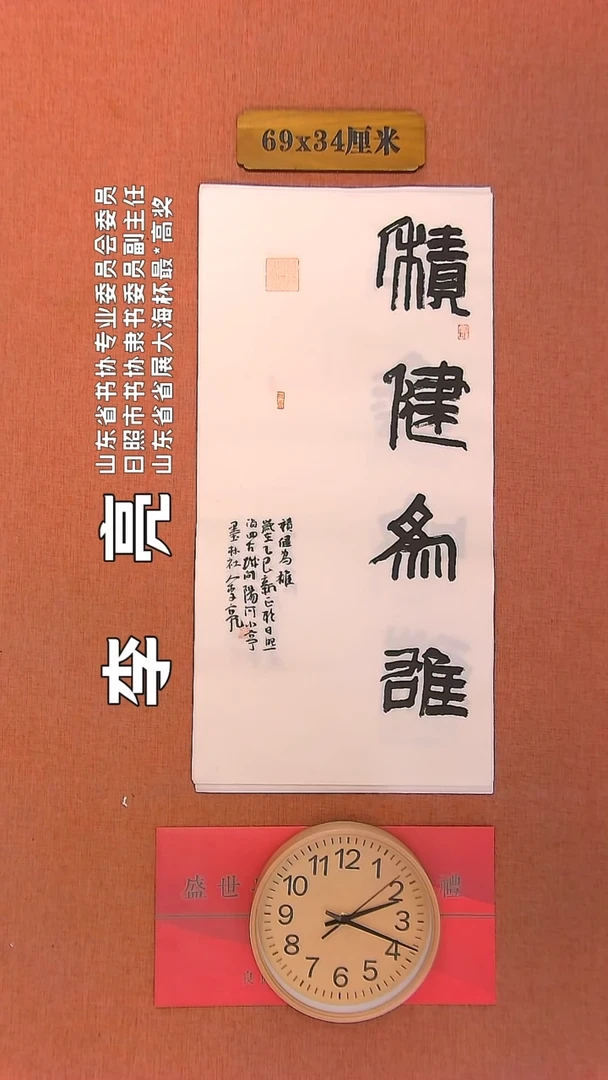 69x34厘米
積
健
為
雄
積健為雄
歲在乙巳新正於日照
墨林社人李亮
山东省书协专业委员会委员
日照市书协隶书委员副主任
山东省省展大海杯最*高奖
李亮
盛世
禮
12
1
2
3
4
5
6
7
8
9
10
11